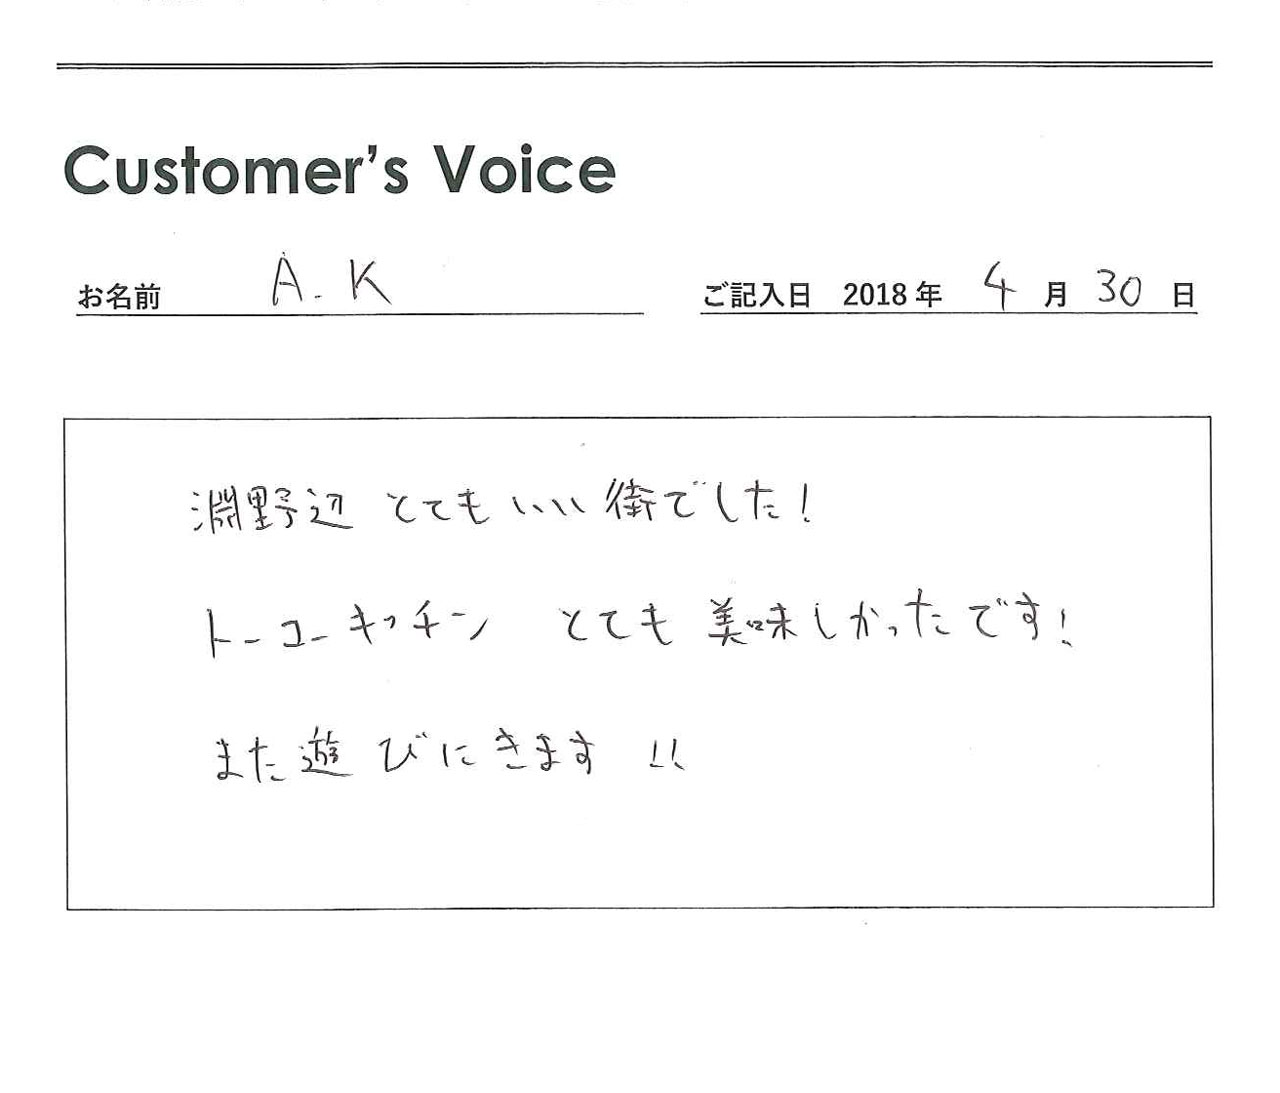 Customer's Voice
お名前 A.K ご記入日 2018年 4月 30日
淵野辺 とてもいい街でした!
トーコーキッチン とても 美味しかったです!
また遊びにきます !!